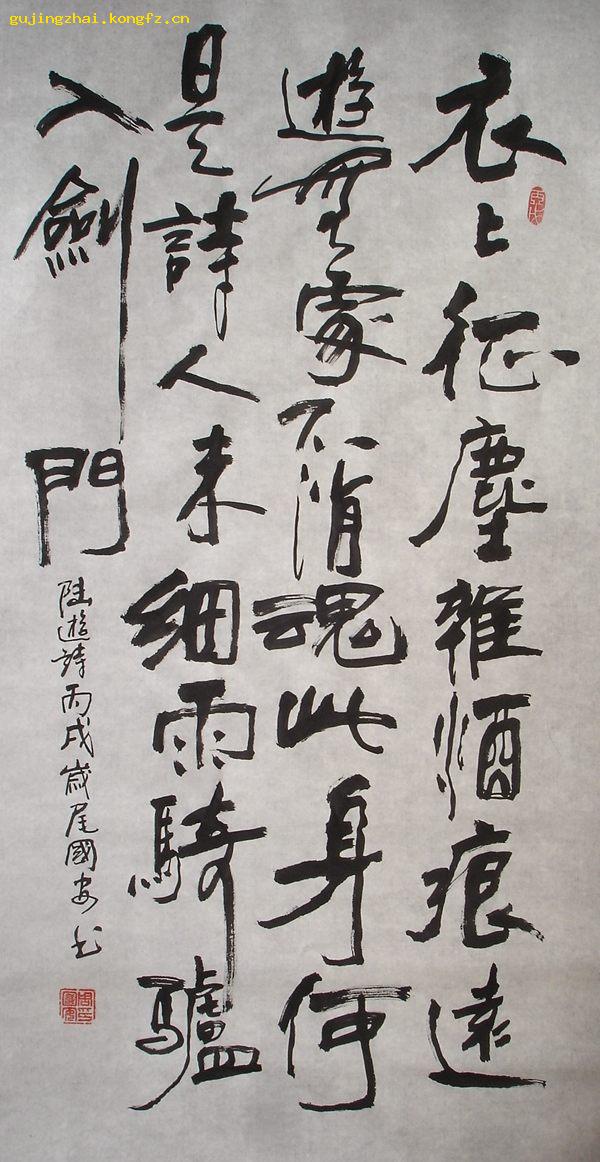 gujingzhai.kongfz.cn
衣上征塵雜酒痕遠
遊無處不消魂此身何
是詩人未細雨騎驢
入劍門
陸遊詩丙戌歲尾國安书